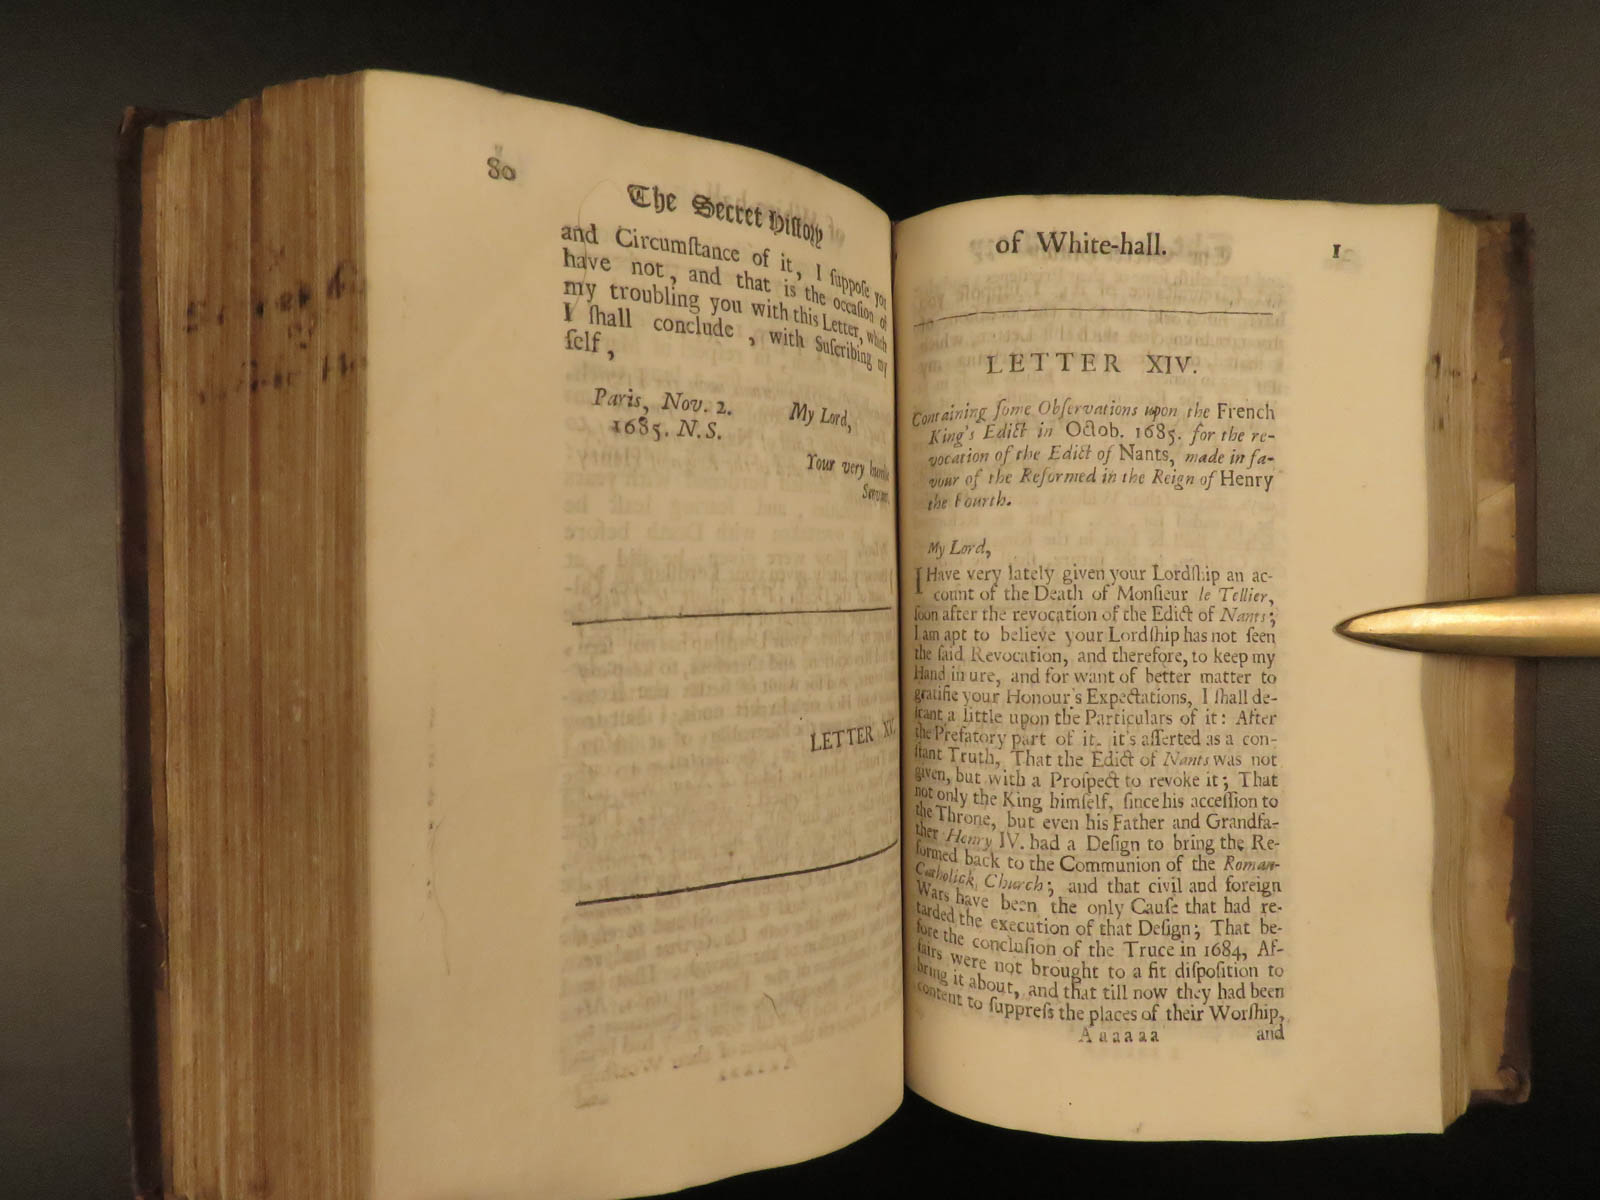 80
The Secret Hiſtory
and Circumſtance of it, I ſuppoſe you
have not, and that is the occaſion of
my troubling you with this Letter, which
I ſhall conclude, with Suſcribing my
ſelf,
Paris, Nov. 2. My Lord,
1685. N.S.
Your very humble
Servant.
LETTER XV.
of White-hall. 1
LETTER XIV.
Containing ſome Obſervations upon the French
King's Edict in Octob. 1685. for the re-
vocation of the Edict of Nants, made in fa-
vour of the Reformed in the Reign of Henry
the Fourth.
My Lord,
I Have very lately given your Lordſhip an ac-
count of the Death of Monſieur le Tellier,
ſoon after the revocation of the Edict of Nants;
I am apt to believe your Lordſhip has not ſeen
the ſaid Revocation, and therefore, to keep my
Hand in ure, and for want of better matter to
gratifie your Honour's Expectations, I ſhall de-
ſcant a little upon the Particulars of it: After
the Prefatory part of it, it's aſſerted as a con-
ſtant Truth, That the Edict of Nants was not
given, but with a Proſpect to revoke it; That
not only the King himſelf, ſince his acceſſion to
the Throne, but even his Father and Grandfa-
ther Henry IV. had a Deſign to bring the Re-
formed back to the Communion of the Roman-
Catholick Church; and that civil and foreign
Wars have been the only Cauſe that had re-
tarded the execution of that Deſign; That be-
fore the concluſion of the Truce in 1684, Af-
fairs were not brought to a fit diſpoſition to
bring it about, and that till now they had been
content to ſuppreſs the places of their Worſhip,
Aaaaaa and